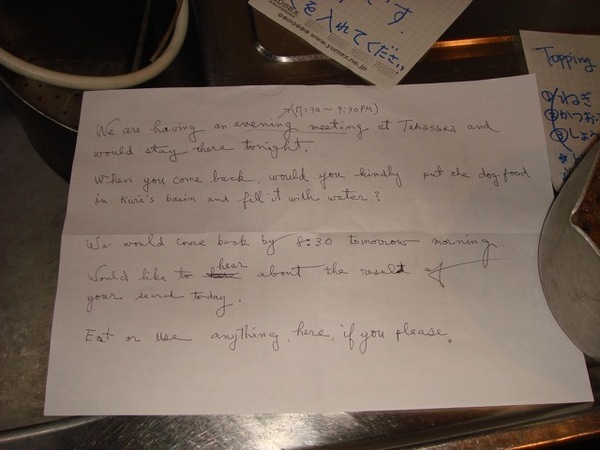 です。
を入れてください
yumex
www.yumex.ne.jp
Topping
① ねぎ
② かつお
③ しょ
(7:30～9:30PM)
We are having an evening meeting at Takasaka and
would stay there tonight.
When you come back, would you kindly put the dog-food
in Kuri's basin and fill it with water?
We would come back by 8:30 tomorrow morning
Would like to hear about the result of
your search today.
Eat or use anything here, if you please.